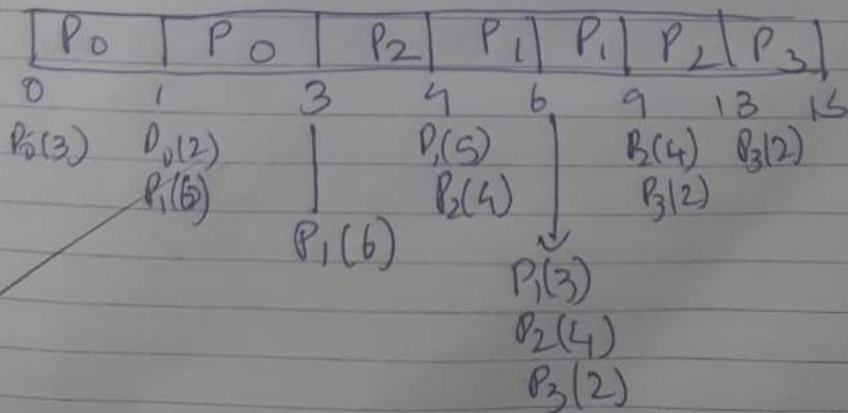 P0 P0 P2 P1 P1 P2 P3
0 1 3 4 6 9 13 15
P0(3) P0(2) P1(5) P2(4) P3(2)
P1(6) P2(4) P3(2)
P1(6)
P1(3)
P2(4)
P3(2)